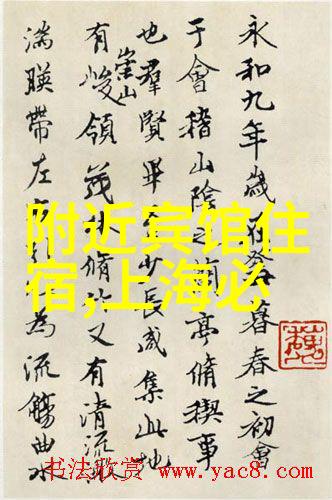 永和九年歲在癸暮春之初會
于會稽山陰之蘭亭脩禊事
也羣賢畢至少長咸集此地
有崇山峻領茂林脩竹又有清流激
湍暎帶左右引以為流觴曲水
附近宾馆住
宿,上海必
书法欣赏
www.yac8.com